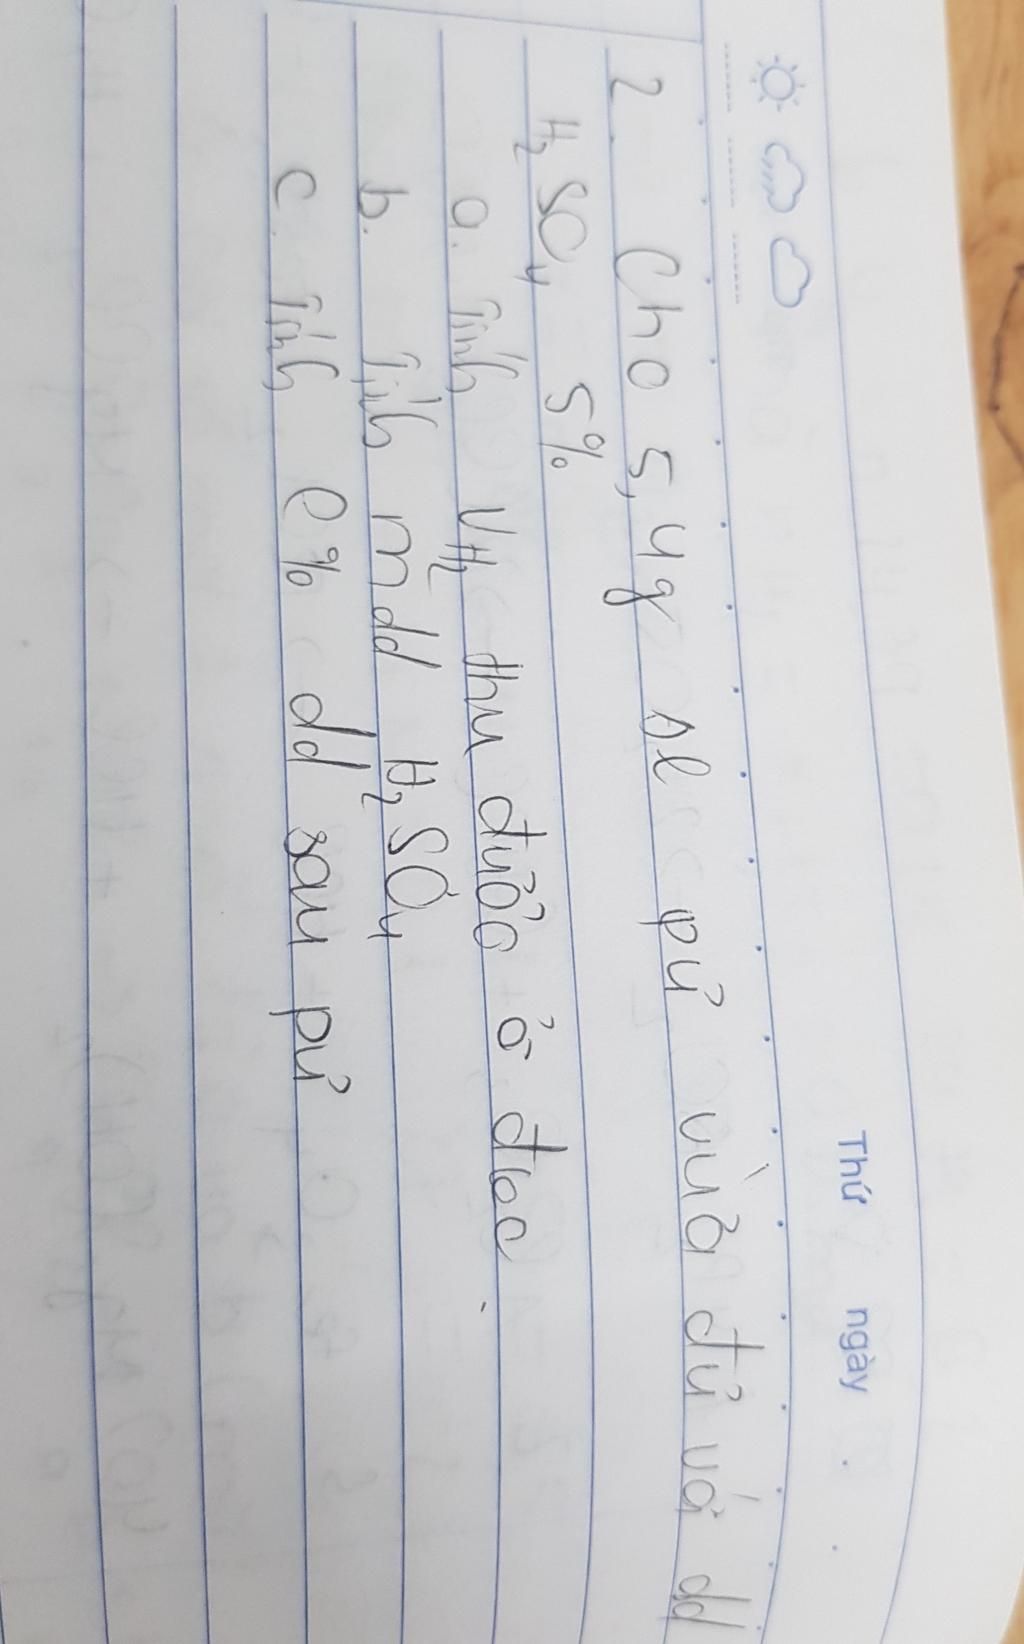 Thứ ngày
2. Cho 5,4g Al pứ vừa đủ với dd
H₂SO₄ 5%
a. Tính VH₂ thu đưởc ở đktc
b. Tính mdd H₂SO₄
c. Tính C% dd sau pứ